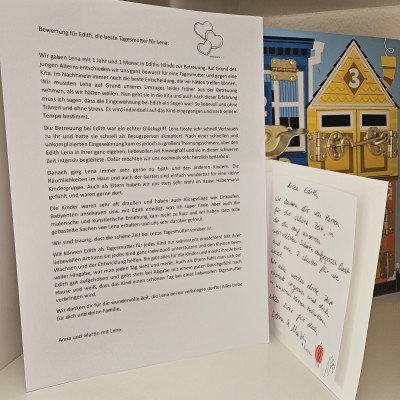 Bewertung für Edith, die beste Tagesmutter für Lena:
Wir gaben Lena mit 1 Jahr und 1 Monat in Ediths Hände zur Betreuung. Auf Grund des
jungen Alters entschieden wir uns ganz bewusst für eine Tagesmutter und gegen eine
Kita. Im Nachhinein immer noch die beste Entscheidung, die wir hätten treffen können.
Wir mussten Lena auf Grund unseres Umzuges leider früher aus der Betreuung
nehmen, als wir hätten wollen. Nun geht sie in die Kita und auch nach dieser Erfahrung
muss ich sagen, dass die Eingewöhnung bei Edith ein Segen war! So liebevoll und ohne
Tränen und ohne Stress. Es wird individuell auf das Kind eingegangen und nach seinem
Tempo bestimmt.
Die Betreuung bei Edith war ein echter Glücksgriff. Lena fasste sehr schnell Vertrauen
zu ihr und hatte sie schnell als Bezugsperson akzeptiert. Nach einer schnellen und
unkomplizierten Eingewöhnung kam es jedoch zu großem Trennungsschmerz, über den
Edith Lena in ihrer ganz eigenen, liebevollen Art hinweghalf und sie in dieser schweren
Zeit intensiv begleitete. Dafür möchten wir uns nochmals sehr herzlich bedanken!
Danach ging Lena immer sehr gerne zu Edith und den anderen Kindern. Die
Räumlichkeiten im Haus und auch der Garten sind einfach wunderbar für eine kleine
Kindergruppe. Auch als Eltern haben wir uns stets sehr wohl im Hause Habermann
gefühlt und waren gerne dort.
Die Kinder waren sehr oft draußen und haben auch Alltagsdinge wie Einkaufen,
Babyenten anschauen uvw. mit Edith erledigt, was ich super finde. Aber auch die
malerische und künstlerische Erziehung kam nicht zu kurz und wir haben stets tolle
gebastelte Sachen von Lena erhalten und uns sehr darüber gefreut.
Wir sind traurig, dass die schöne Zeit bei
Wir können Edith als Tagesmutter für jedes Kind nur wärmstens empfehlen! Mit ihrer
liebevollen Art kann sie jedes Kind ganz individuell unterstützen und den Kleinen beim
Wachsen und der Entwicklung helfen. Sie gibt alles für die Kinder und macht ihre Arbeit
voller Hingabe, was man jeden Tag sieht und merkt. Auch als Eltern fühlt man sich bei
Edith gut aufgehoben und geht stets bei Abgabe mit einem guten Bauchgefühl nach
Hause und weiß, dass das Kind einen schönen Tag bei einer liebevollen Tagesmutter
verbringen wird.
Wir danken dir für die wundervolle Zeit, die Lena bei dir verbringen durfte! Alles Liebe
für dich und deine Familie,
Anna und Martin mit Lena
3
Liebe Edith,
wir danken dir von Herzen
für die schöne Zeit, in
der du auf unseren